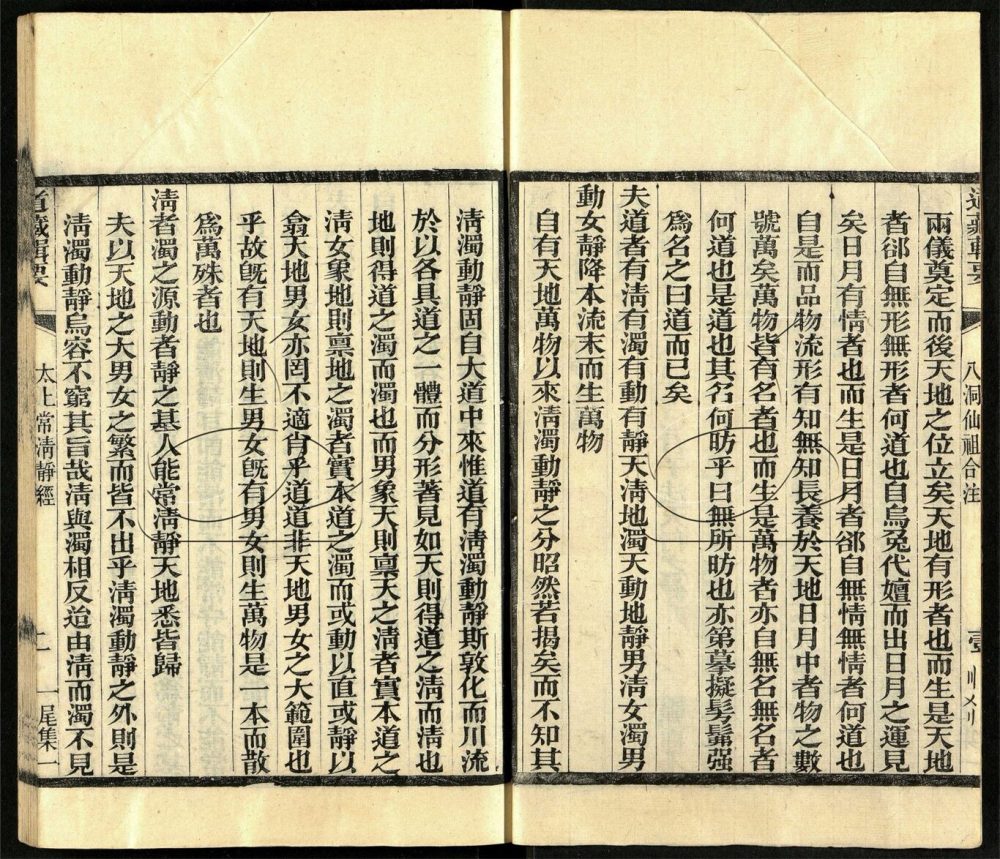 兩儀奠定而後天地之位立矣天地有形者也而生是天地
者郤自無形無形者何道也自烏兔代嬗而出日月之運見
矣日月有情者也而生是日月者郤自無情無情者何道也
自是而品物流形有知無知長養於天地日月中者物之數
號萬矣萬物皆有名者也而生是萬物者亦自無名無名者
何道也是道也其名何昉乎曰無所昉也亦第摹擬髣髴强
爲名之曰道而已矣
夫道者有淸有濁有動有靜天淸地濁天動地靜男淸女濁男
動女靜降本流末而生萬物
自有天地萬物以來淸濁動靜之分昭然若揭矣而不知其
八洞仙祖合注
淸濁動靜固自大道中來惟道有淸濁動靜斯敦化而川流
於以各具道之一體而分形著見如天則得道之淸而淸也
地則得道之濁而濁也而男象天則禀天之淸者實本道之
淸女象地則禀地之濁者實本道之濁而或動以直或靜以
翕天地男女亦罔不適肖乎道道非天地男女之大範圍也
乎故旣有天地則生男女旣有男女則生萬物是一本而散
爲萬殊者也
淸者濁之源動者靜之基人能常淸靜天地悉皆歸
夫以天地之大男女之繁而皆不出乎淸濁動靜之外則是
淸濁動靜烏容不窮其旨哉淸與濁相反迨由淸而濁不見
道藏輯要
太上常淸靜經
二
尾集一